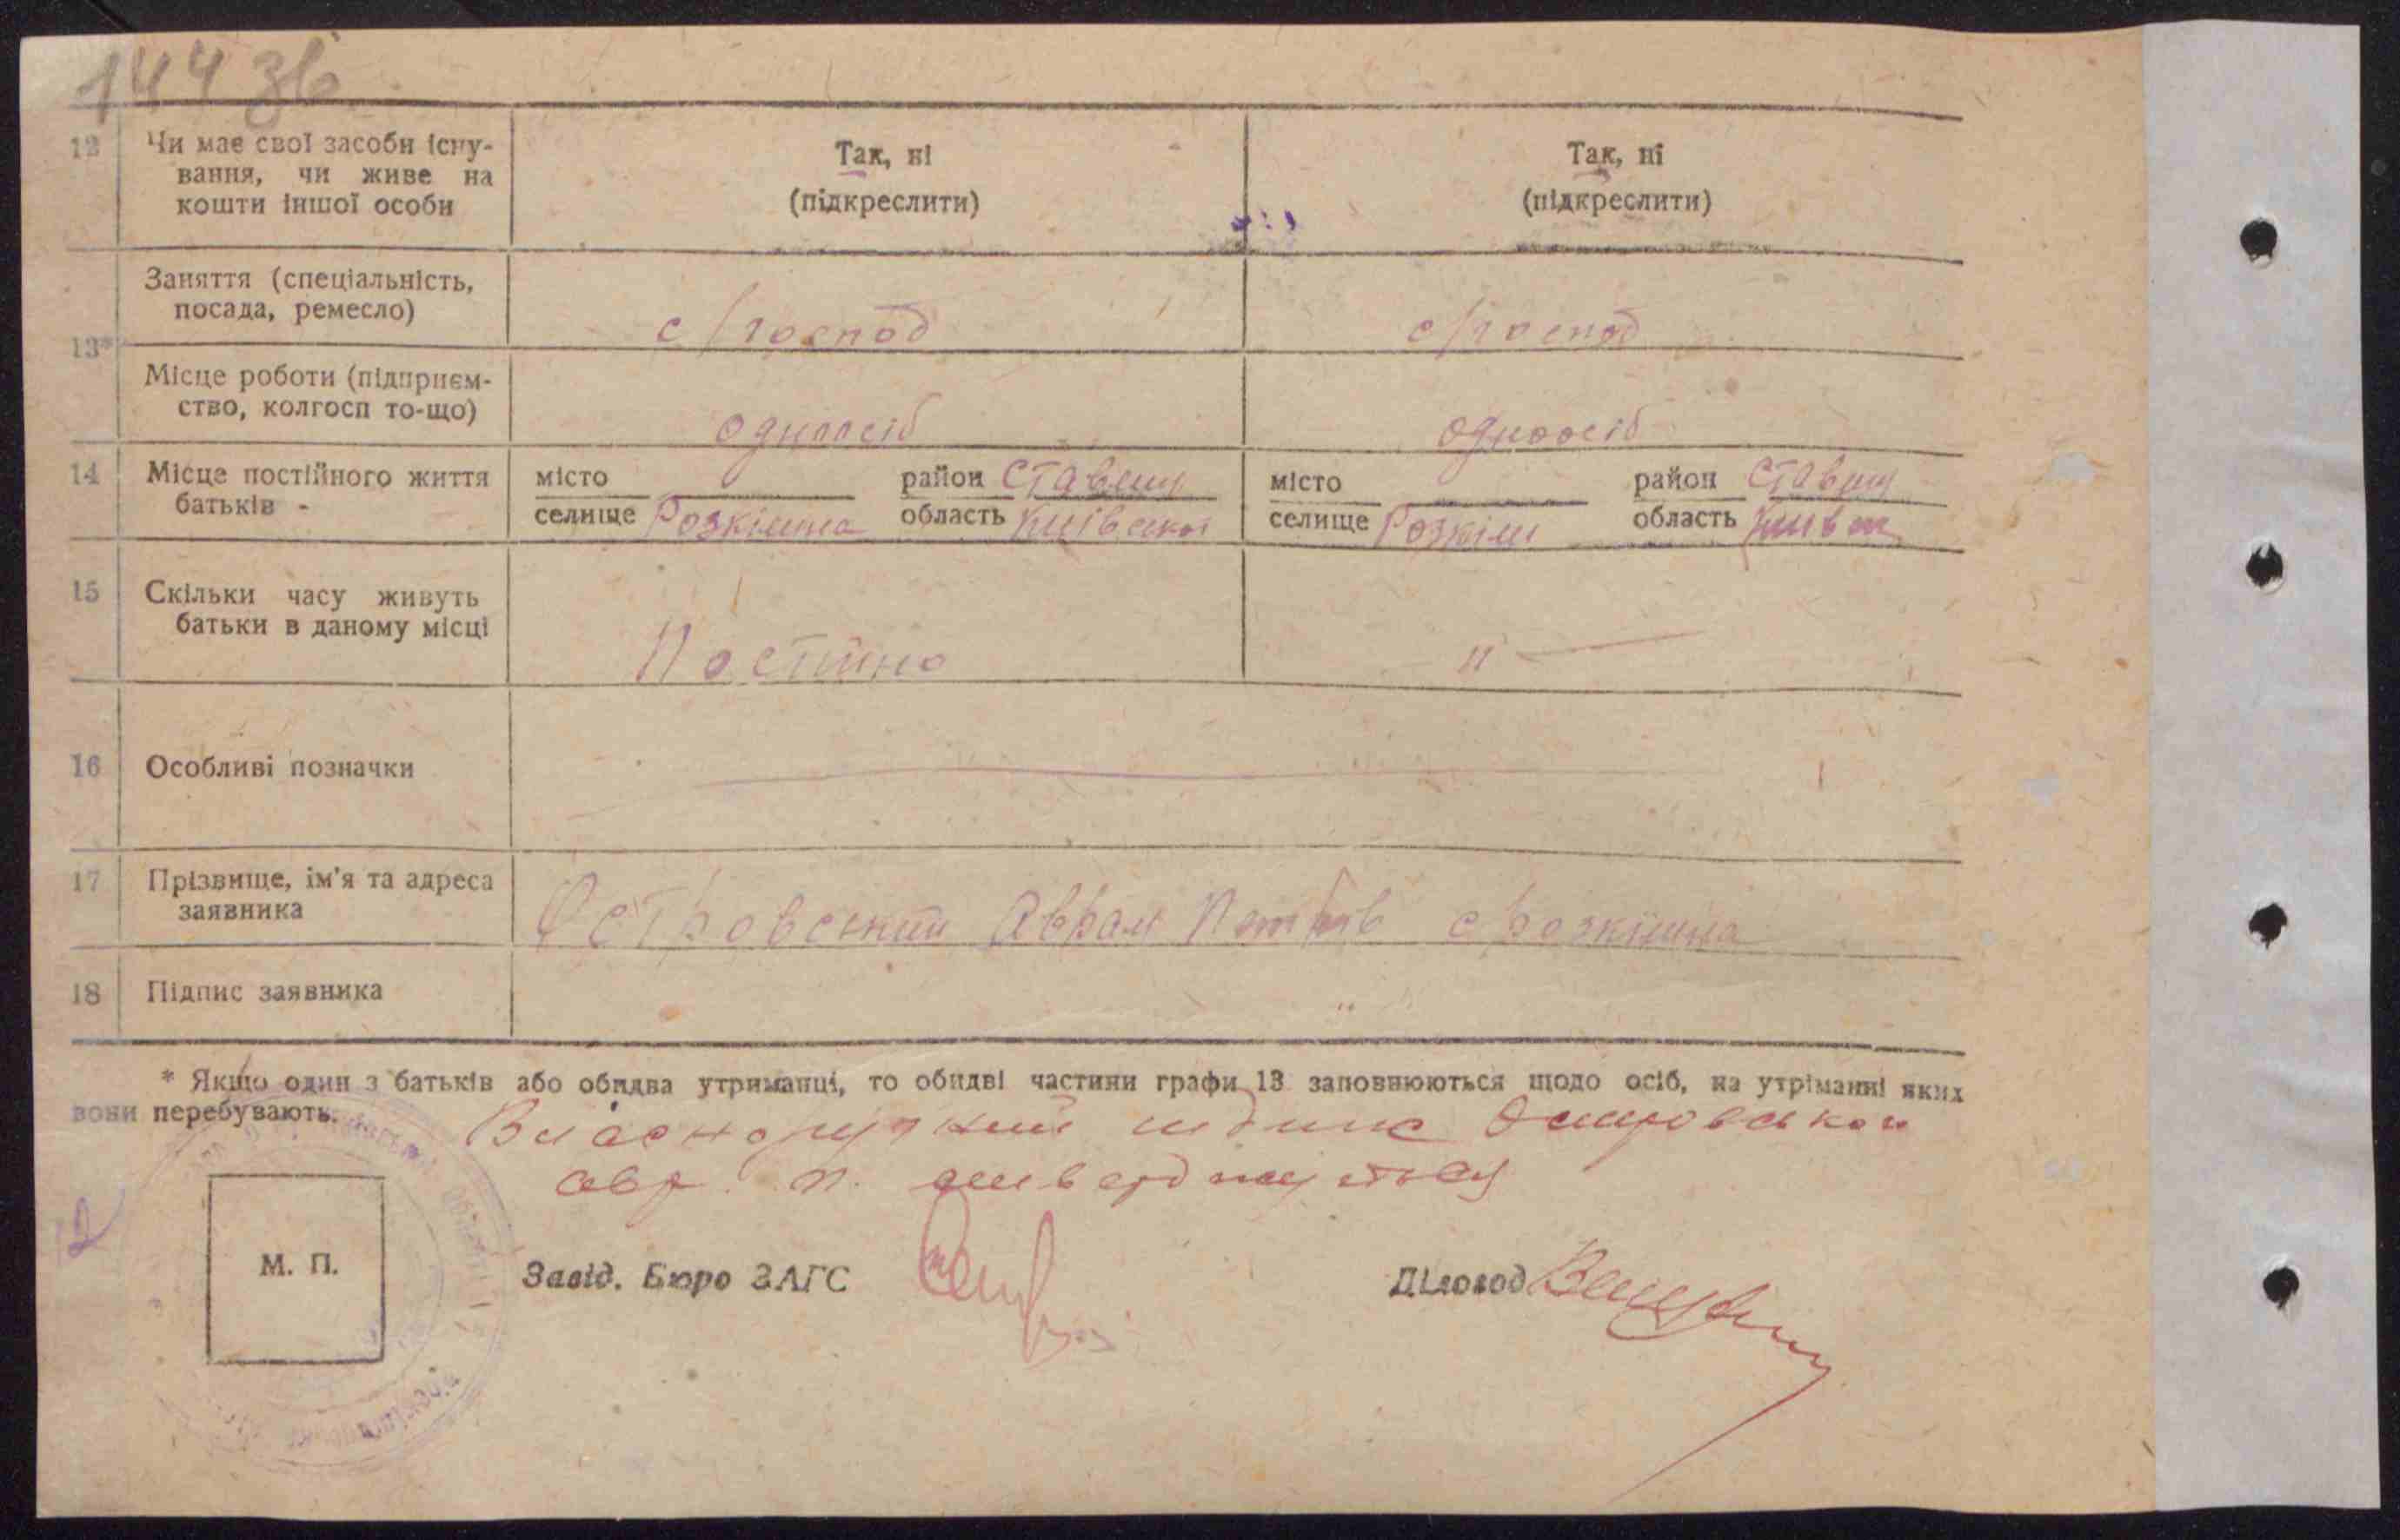 144 зв
12 Чи має свої засоби існу-
вання, чи живе на
кошти іншої особи
Так, ні
(підкреслити)
Так, ні
(підкреслити)
13*
Заняття (спеціальність,
посада, ремесло)
с/господ
с/господ
Місце роботи (підприєм-
ство, колгосп то-що)
одноосіб
одноосіб
14 Місце постійного життя
батьків -
місто
район Ставищ
селище Розкішна
область Київської
місто
район Ставищ
селище Розкіш
область Київськ
15 Скільки часу живуть
батьки в даному місці
Постійно
"—
16 Особливі позначки
17 Прізвище, ім'я та адреса
заявника
Островський Аврам Петрів с Розкішна
18 Підпис заявника
* Якщо один з батьків або обидва утриманці, то обидві частини графи 13 заповнюються щодо осіб, на утріманні яких
вони перебувають.
Власноручний підпис Островського
Авр. П. стверджується
2
М. П.
Завід. Бюро ЗАГС
Діловод